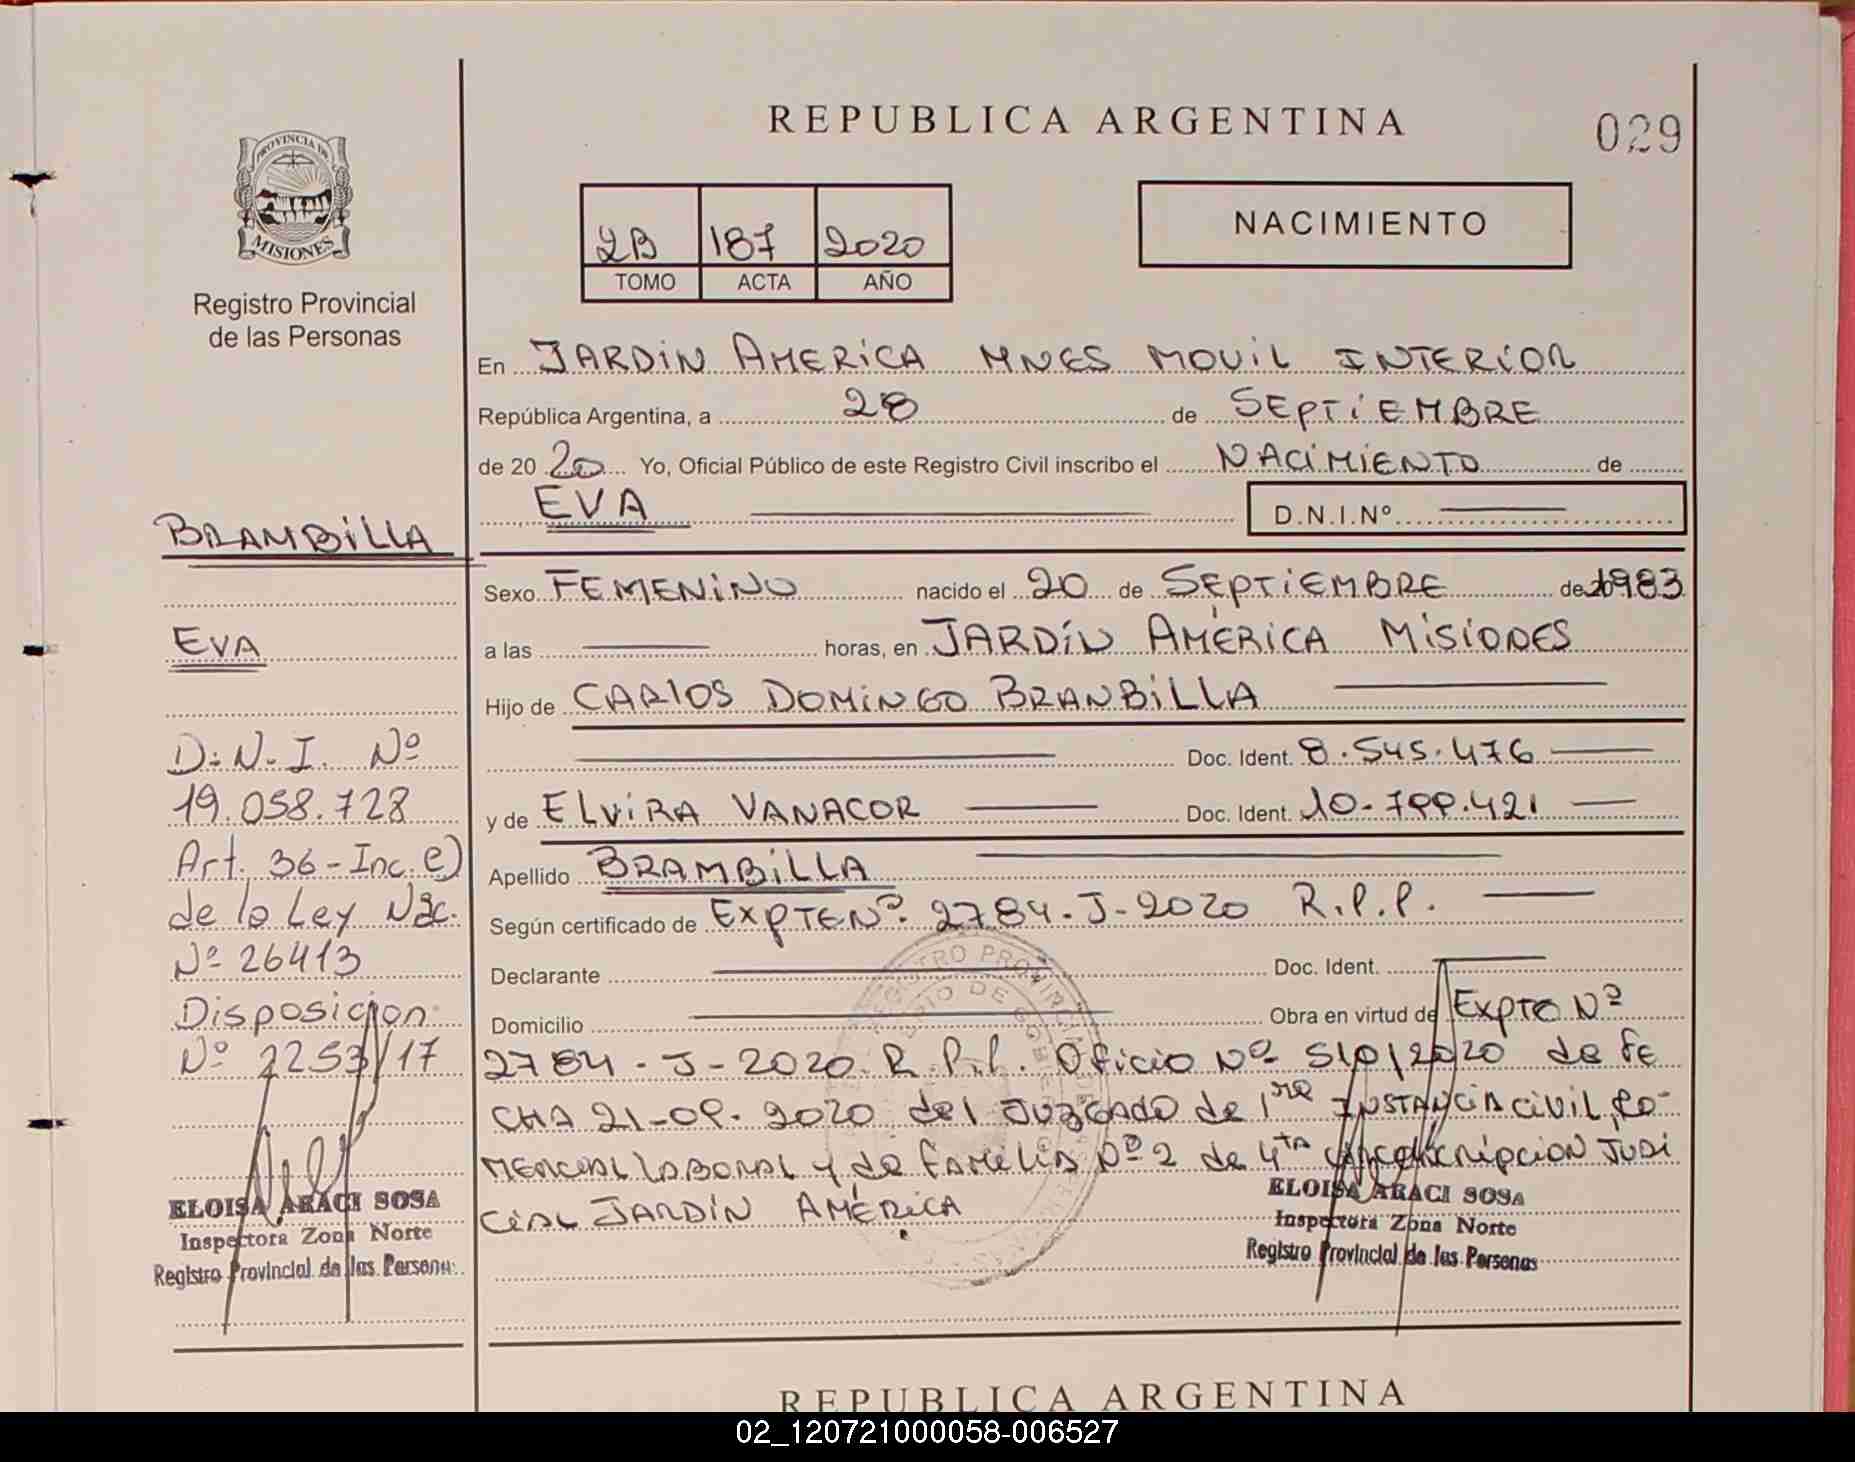 REPUBLICA ARGENTINA
029
PROVINCIA DE
MISIONES
Registro Provincial
de las Personas
2B 187 2020
TOMO ACTA AÑO
NACIMIENTO
En JARDIN AMERICA MNES MOVIL INTERIOR
República Argentina, a 28 de SEPTIEMBRE
de 20 20 Yo, Oficial Público de este Registro Civil inscribo el NACIMIENTO de
EVA
D.N.I.Nº
BRAMBILLA
EVA
D.N.I. Nº
19.058.728
Art. 36-Inc. e)
de la Ley Nac.
Nº 26413
Disposicion
Nº 2253/17
ELOISA ARACI SOSA
Inspectora Zona Norte
Registro Provincial de las Personas
Sexo FEMENINO nacido el 20 de SEPTIEMBRE de 1983
a las horas, en JARDÍN AMÉRICA MISIONES
Hijo de CARLOS DOMINGO BRANBILLA
Doc. Ident. 8.545.476
y de ELVIRA VANACOR Doc. Ident. 10.799.421
Apellido BRAMBILLA
Según certificado de EXPTE Nº 2784-J-2020 R.P.P.
Declarante Doc. Ident.
Domicilio Obra en virtud de EXPTO Nº
2784-J-2020 R.P.P. Oficio Nº 510/2020 de FE
CHA 21-09-2020 del JUZGADO de 1ra INSTANCIA CIVIL, CO-
MERCIAL LABORAL y de FAMILIA Nº 2 de 4ta CIRCUNCRIPCION JUDI
CIAL JARDÍN AMÉRICA
ELOISA ARACI SOSA
Inspectora Zona Norte
Registro Provincial de las Personas
REPUBLICA ARGENTINA
02_120721000058-006527